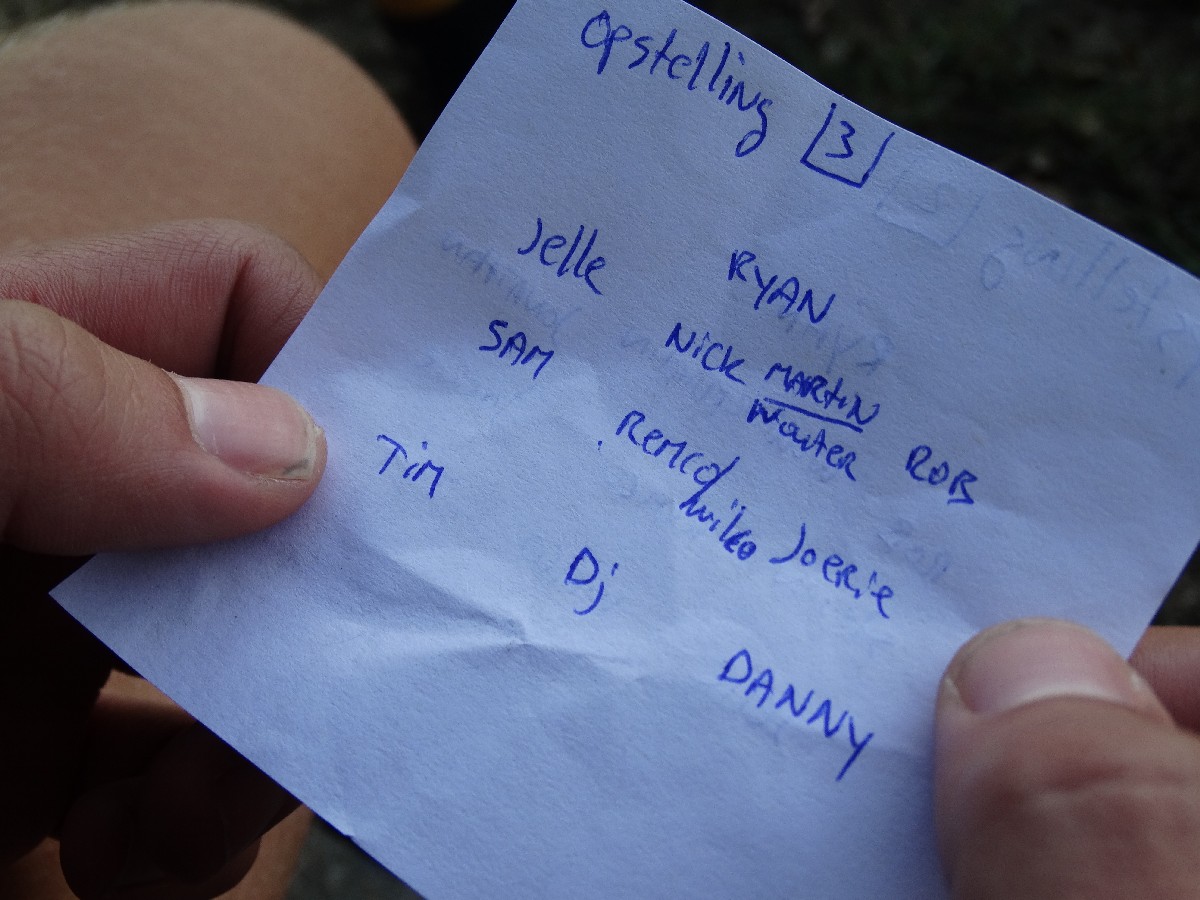 Opstelling 3
Jelle RYAN
SAM NiCK MARTiN
WouTER ROB
TiM REMCO
Milko JOERiE
Dj
DANNY